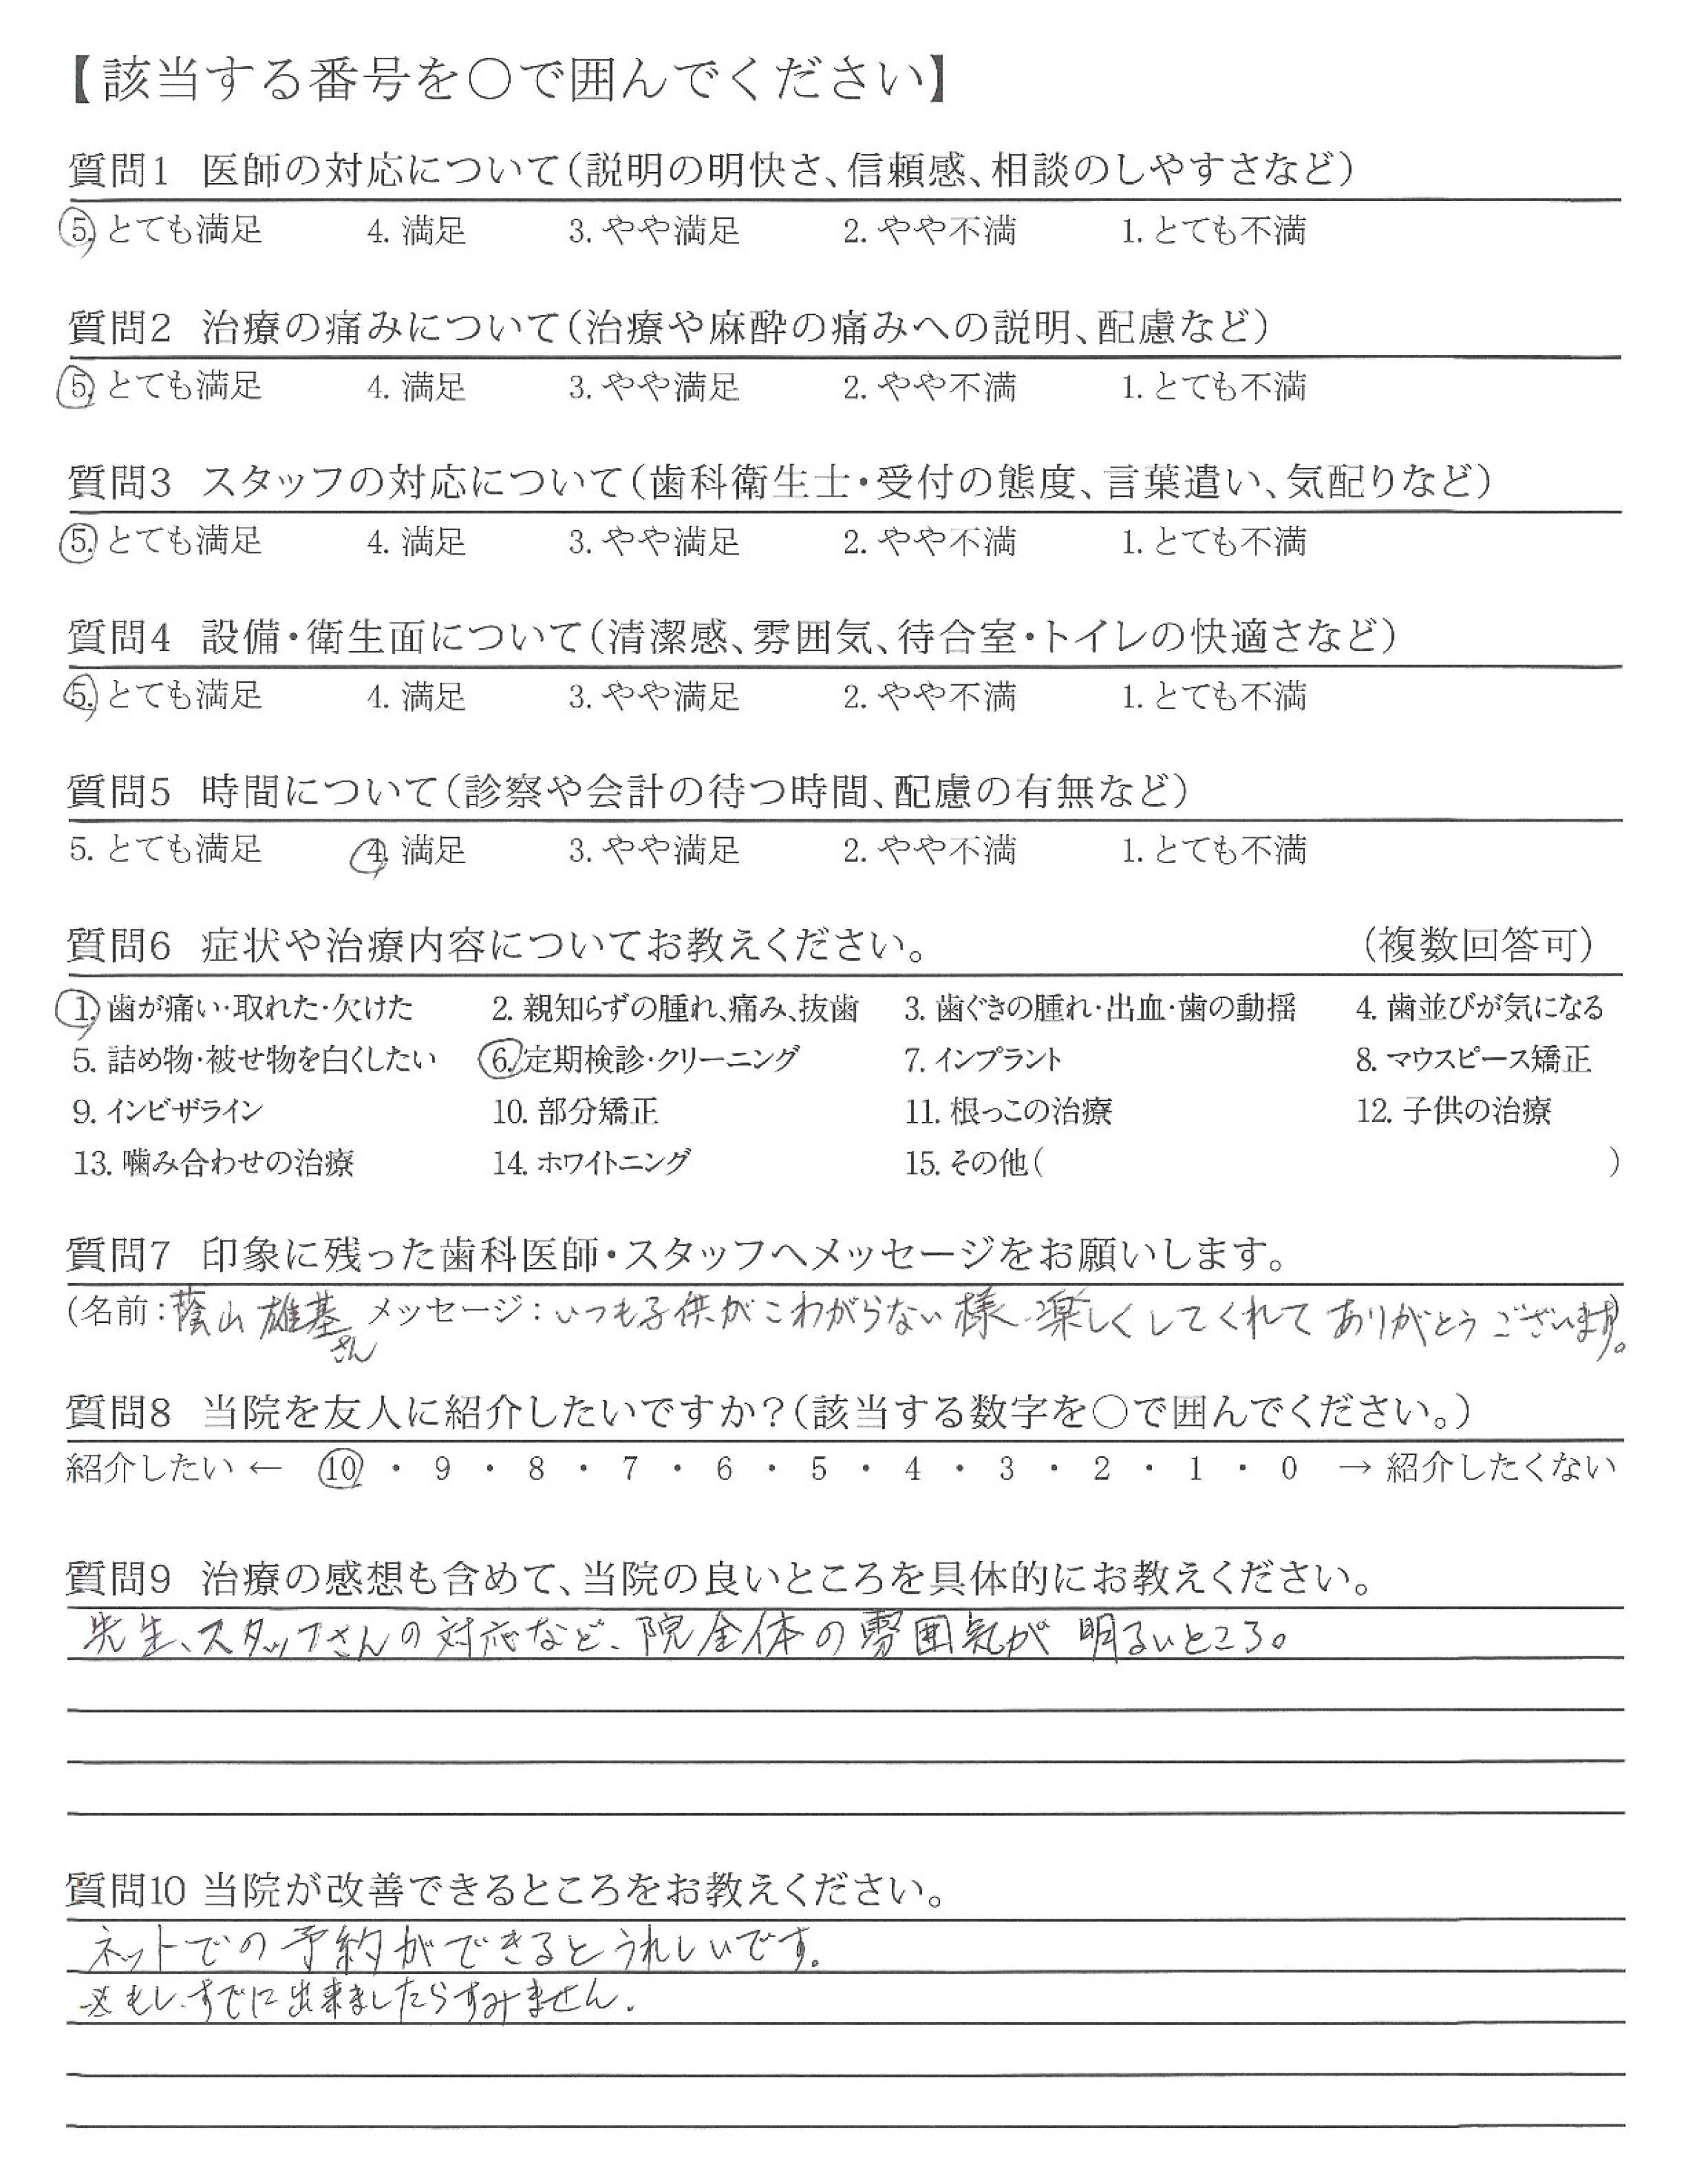 【該当する番号を○で囲んでください】
質問1 医師の対応について(説明の明快さ、信頼感、相談のしやすさなど)
5. とても満足 4. 満足 3. やや満足 2. やや不満 1. とても不満
質問2 治療の痛みについて(治療や麻酔の痛みへの説明、配慮など)
5. とても満足 4. 満足 3. やや満足 2. やや不満 1. とても不満
質問3 スタッフの対応について(歯科衛生士・受付の態度、言葉遣い、気配りなど)
5. とても満足 4. 満足 3. やや満足 2. やや不満 1. とても不満
質問4 設備・衛生面について(清潔感、雰囲気、待合室・トイレの快適さなど)
5. とても満足 4. 満足 3. やや満足 2. やや不満 1. とても不満
質問5 時間について(診察や会計の待つ時間、配慮の有無など)
5. とても満足 4. 満足 3. やや満足 2. やや不満 1. とても不満
質問6 症状や治療内容についてお教えください。 (複数回答可)
1. 歯が痛い・取れた・欠けた 2. 親知らずの腫れ、痛み、抜歯 3. 歯ぐきの腫れ・出血・歯の動揺 4. 歯並びが気になる
5. 詰め物・被せ物を白くしたい 6. 定期検診・クリーニング 7. インプラント 8. マウスピース矯正
9. インビザライン 10. 部分矯正 11. 根っこの治療 12. 子供の治療
13. 噛み合わせの治療 14. ホワイトニング 15. その他( )
質問7 印象に残った歯科医師・スタッフへメッセージをお願いします。
(名前:蔭山 雄基さん メッセージ:いつも子供がこわがらない様、楽しくしてくれてありがとうございます。)
質問8 当院を友人に紹介したいですか?(該当する数字を○で囲んでください。)
紹介したい ← 10 ・ 9 ・ 8 ・ 7 ・ 6 ・ 5 ・ 4 ・ 3 ・ 2 ・ 1 ・ 0 → 紹介したくない
質問9 治療の感想も含めて、当院の良いところを具体的にお教えください。
先生、スタッフさんの対応など、院全体の雰囲気が明るいところ。
質問10 当院が改善できるところをお教えください。
ネットでの予約ができるとうれしいです。
※もし、すでに出来ましたらすみません。